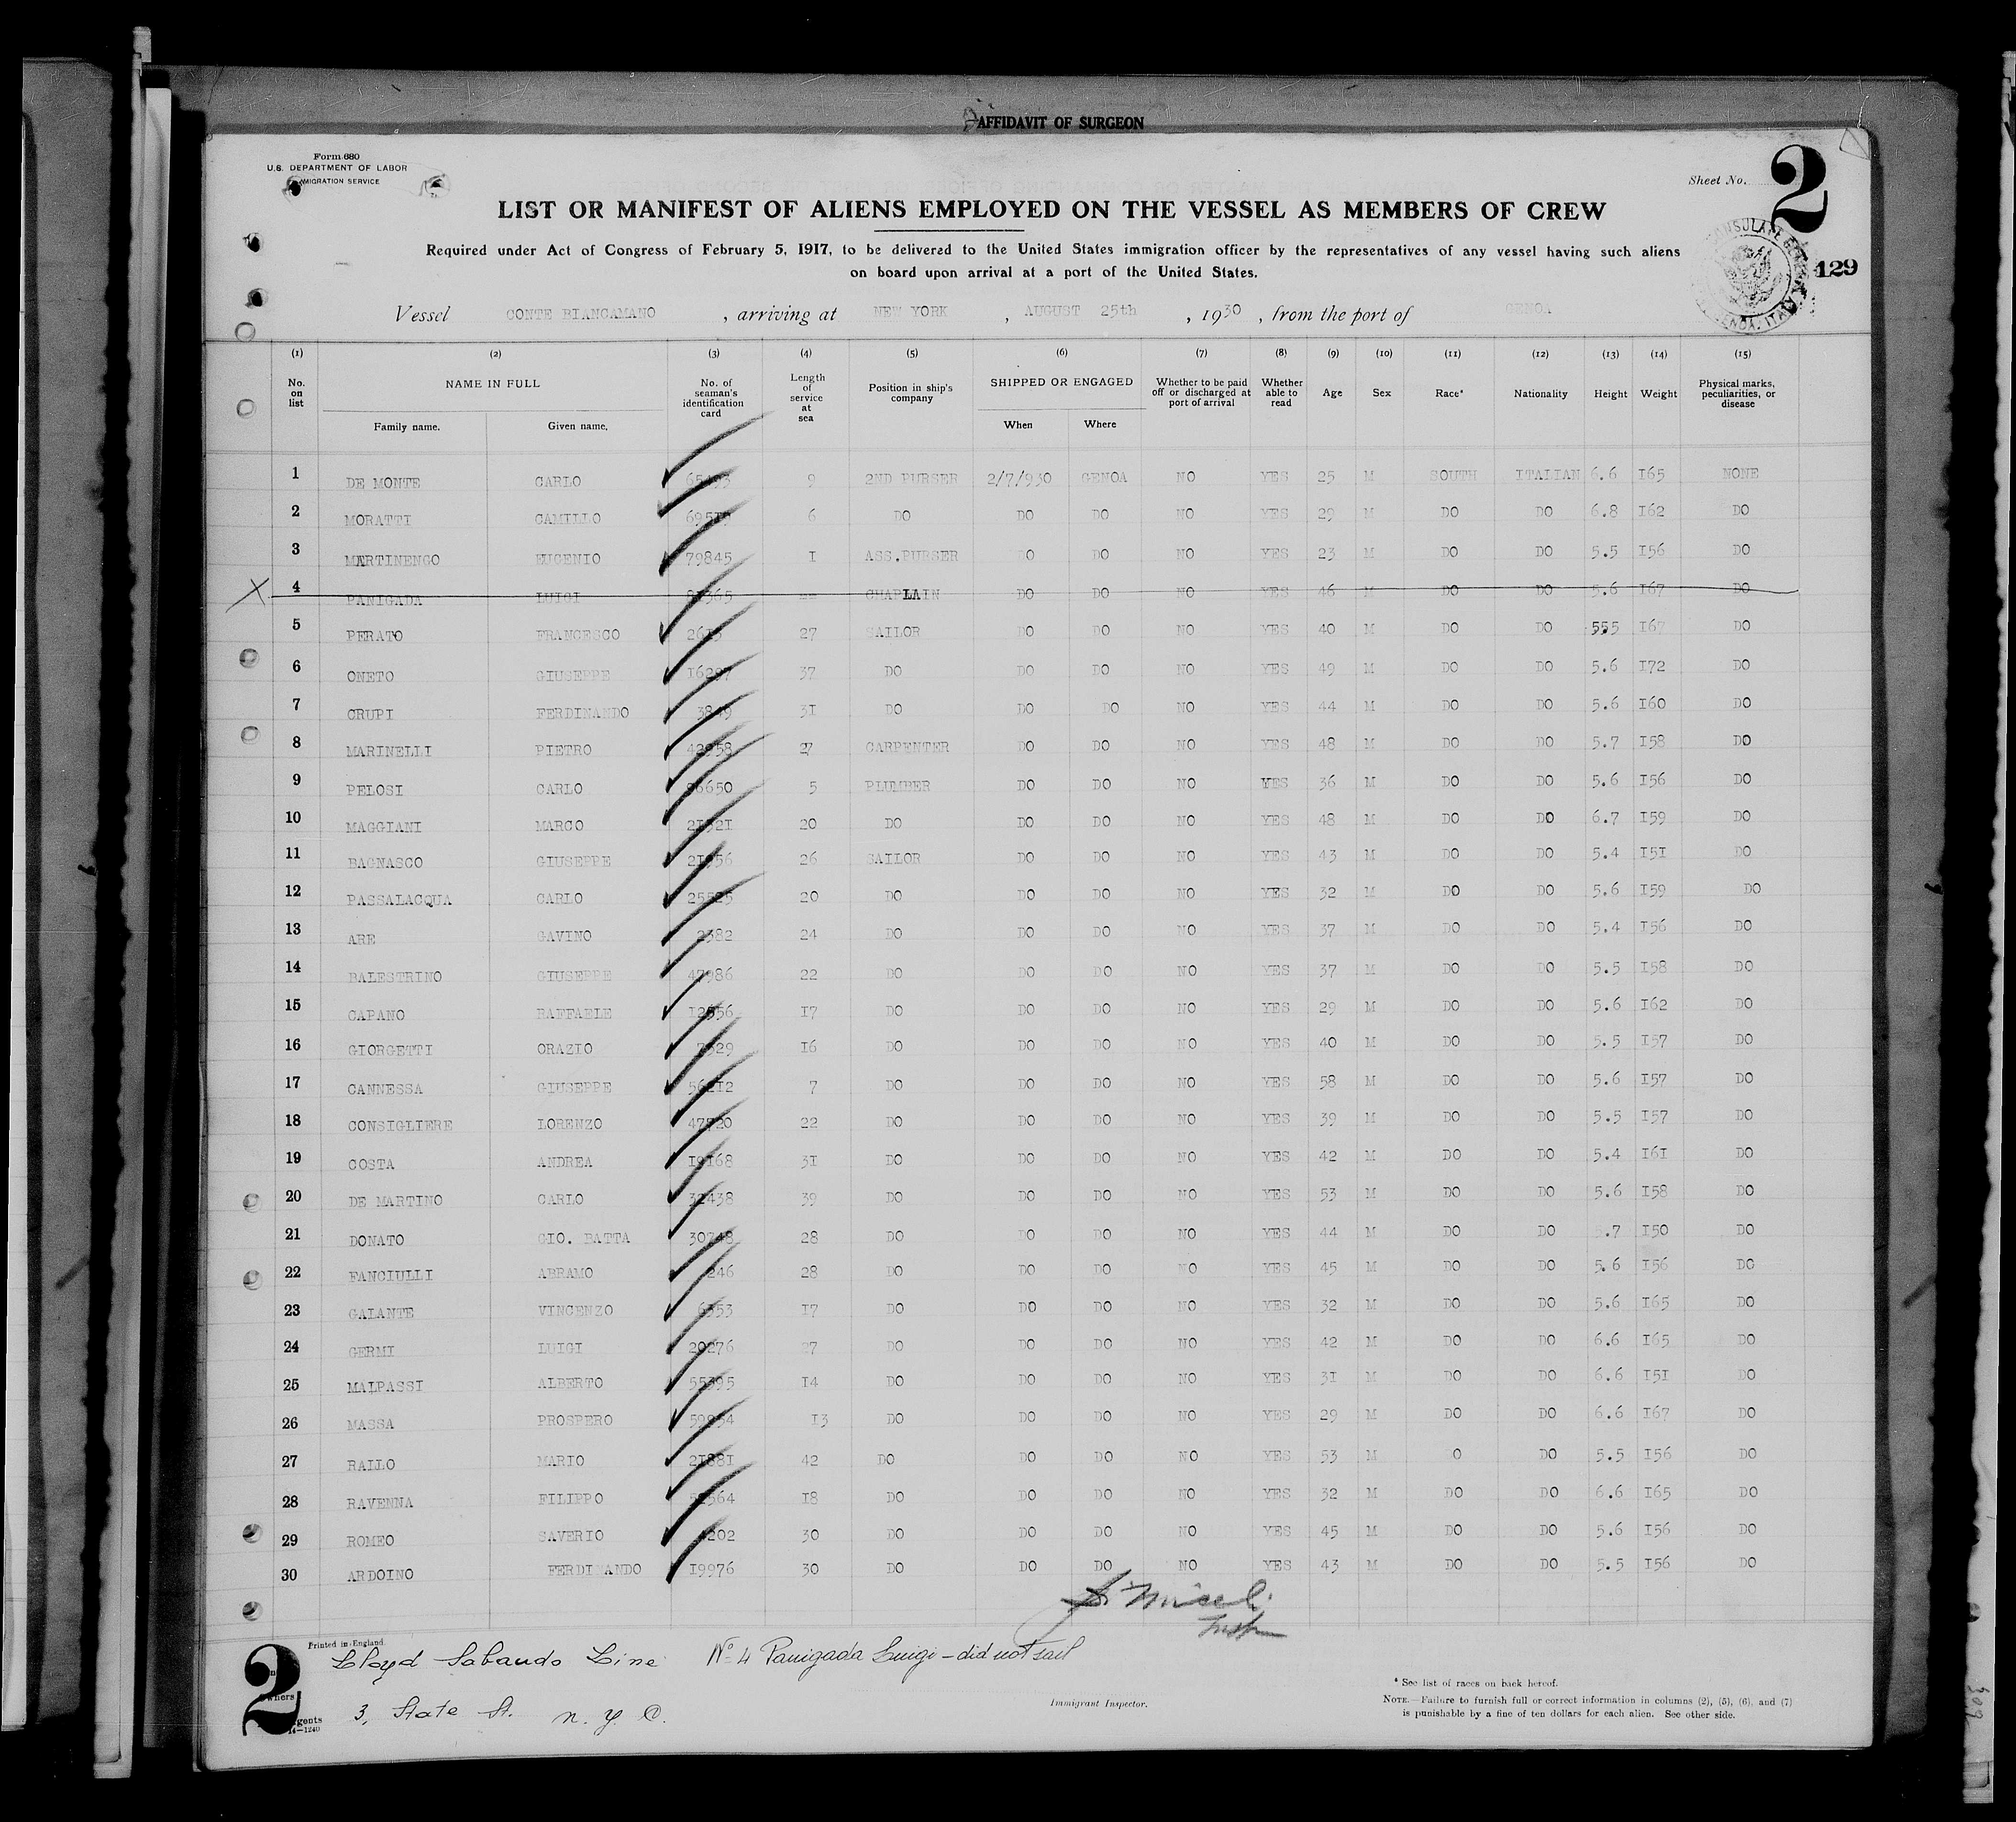 AFFIDAVIT OF SURGEON
Form 680
U.S. DEPARTMENT OF LABOR
IMMIGRATION SERVICE
Sheet No. 2
LIST OR MANIFEST OF ALIENS EMPLOYED ON THE VESSEL AS MEMBERS OF CREW
Required under Act of Congress of February 5, 1917, to be delivered to the United States immigration officer by the representatives of any vessel having such aliens
on board upon arrival at a port of the United States.
129
Vessel CONTE BIANCAMANO , arriving at NEW YORK , AUGUST 25th , 1930 , from the port of GENOA
(1) (2) (3) (4) (5) (6) (7) (8) (9) (10) (11) (12) (13) (14) (15)
No. on list NAME IN FULL Family name. Given name. No. of seaman's identification card Length of service at sea Position in ship's company SHIPPED OR ENGAGED When Where Whether to be paid off or discharged at port of arrival Whether able to read Age Sex Race* Nationality Height Weight Physical marks, peculiarities, or disease
1 DE MONTE CARLO 9 2ND PURSER 2/7/930 GENOA NO YES 25 M SOUTH ITALIAN 6.6 I65 NONE
2 MORATTI CAMILLO 6 DO DO DO NO YES 29 M DO DO 6.8 I62 DO
3 MARTINENGO EUGENIO 79845 I ASS.PURSER DO DO NO YES 23 M DO DO 5.5 I56 DO
4 PANIGADA LUIGI CHAPLAIN DO DO NO YES 46 M DO DO 5.6 I67 DO
5 PERATO FRANCESCO 27 SAILOR DO DO NO YES 40 M DO DO 555 I67 DO
6 ONETO GIUSEPPE 37 DO DO DO NO YES 49 M DO DO 5.6 I72 DO
7 CRUPI FERDINANDO 3I DO DO DO NO YES 44 M DO DO 5.6 I60 DO
8 MARINELLI PIETRO 27 CARPENTER DO DO NO YES 48 M DO DO 5.7 I58 DO
9 PELOSI CARLO 5 PLUMBER DO DO NO YES 36 M DO DO 5.6 I56 DO
10 MAGGIANI MARCO 20 DO DO DO NO YES 48 M DO DO 6.7 I59 DO
11 BAGNASCO GIUSEPPE 26 SAILOR DO DO NO YES 43 M DO DO 5.4 I5I DO
12 PASSALACQUA CARLO 20 DO DO DO NO YES 32 M DO DO 5.6 I59 DO
13 ARE GAVINO 24 DO DO DO NO YES 37 M DO DO 5.4 I56 DO
14 BALESTRINO GIUSEPPE 22 DO DO DO NO YES 37 M DO DO 5.5 I58 DO
15 CAPANO RAFFAELE I7 DO DO DO NO YES 29 M DO DO 5.6 I62 DO
16 GIORGETTI ORAZIO I6 DO DO DO NO YES 40 M DO DO 5.5 I57 DO
17 CANNESSA GIUSEPPE 7 DO DO DO NO YES 58 M DO DO 5.6 I57 DO
18 CONSIGLIERE LORENZO 22 DO DO DO NO YES 39 M DO DO 5.5 I57 DO
19 COSTA ANDREA I9I68 3I DO DO DO NO YES 42 M DO DO 5.4 I6I DO
20 DE MARTINO CARLO 39 DO DO DO NO YES 53 M DO DO 5.6 I58 DO
21 DONATO GIO. BATTA 28 DO DO DO NO YES 44 M DO DO .7 I50 DO
22 FANCIULLI ABRAMO 28 DO DO DO NO YES 45 M DO DO 5.6 I56 DO
23 GALANTE VINCENZO I7 DO DO DO NO YES 32 M DO DO 5.6 I65 DO
24 GERMI LUIGI 27 DO DO DO NO YES 42 M DO DO 6.6 I65 DO
25 MALPASSI ALBERTO I4 DO DO DO NO YES 3I M DO DO 6.6 I5I DO
26 MASSA PROSPERO I3 DO DO DO NO YES 29 M DO DO 6.6 I67 DO
27 RALLO MARIO 42 DO DO DO NO YES 53 M O DO 5.5 I56 DO
28 RAVENNA FILIPPO I8 DO DO DO NO YES 32 M DO DO 6.6 I65 DO
29 ROMEO SAVERIO 30 DO DO DO NO YES 45 M DO DO 5.6 I56 DO
30 ARDOINO FERDINANDO I9976 30 DO DO DO NO YES 43 M DO DO 5.5 I56 DO
Printed in England.
2
Lloyd Sabaudo Line No 4 Panigada Luigi - did not sail
3, State St. N.Y.C.
Immigrant Inspector.
* See list of races on back hereof.
NOTE.—Failure to furnish full or correct information in columns (2), (5), (6), and (7)
is punishable by a fine of ten dollars for each alien. See other side.
14—1240